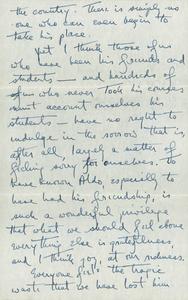 the country. There is simply no
one who can even begin to
take his place.
Yet I think those of us
who have been his friends and
students — and hundreds of
of us who never took his courses
must account ourselves his
students — have no right to
indulge in the sorrow that is
after all, largely a matter of
feeling sorry for ourselves. To
have known Aldo, especially to
have had his friendship, is
such a wonderful privilege
that what we should feel above
everything else is gratefulness,
and I think joy, at our richness.
Everyone feels the tragic
waste that we have lost him